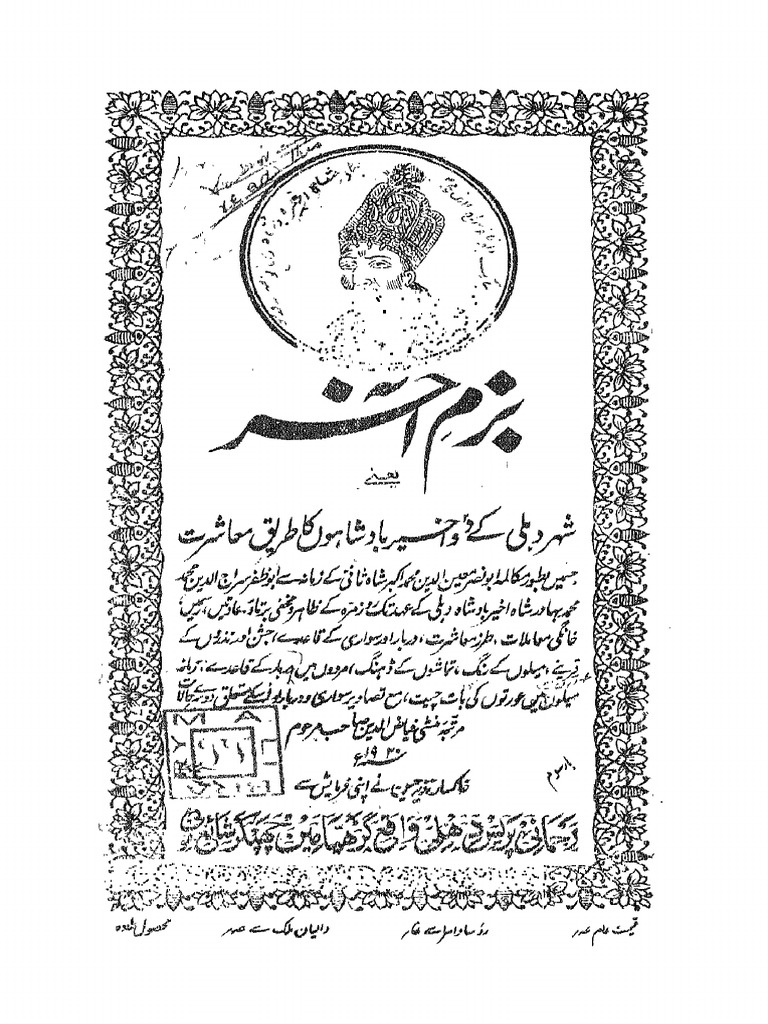 بزم آخر
یعنے
شہر دہلی کے دو اخیر بادشاہوں کا طریق معاشرت
جسمیں بطور مکالمہ ابو نصر معین الدین محمد اکبر شاہ ثانی کے زمانہ سے ابو ظفر سراج الدین محمد
محمد بہادر شاہ اخیر بادشاہ دہلی کے عہد تک روزمرہ کے ظاہر و مخفی برتاؤ، عادتیں، رسمیں
خانگی معاملات، طرز معاشرت، دربار اور سواری کے قاعدے، جشن اور نذروں کے
قرینے، میلوں کے رنگ، تماشوں کے ڈہنگ، مردوں میں دربار کے قاعدے، زنانہ
میلوں میں عورتوں کی بات چیت، مع تصاویر سواری و دربار
مرتبہ منشی فیاض الدین صاحب مرحوم
۱۹۲۰ء
خاکسار نے اپنی فرمایش سے
بار سوم
رحمانی پریس دہلی واقع گڑھیا میں چھپکر شائع
قیمت عام عہ
رؤسا و امرا سے
والیان ملک سے
محصول علاوہ